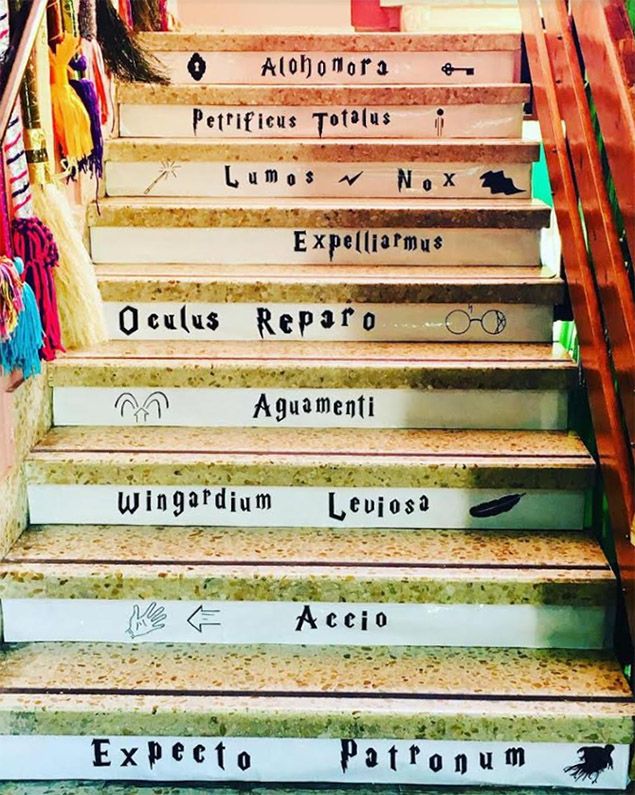 Alohomora
Petrificus Totalus
Lumos Nox
Expelliarmus
Oculus Reparo
Aguamenti
Wingardium Leviosa
Accio
Expecto Patronum